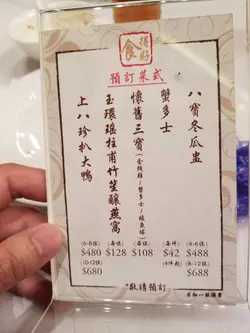 得好
食
預訂菜式
八寶冬瓜盅
(4-6位)
$488
(8-12位)
$688
蟹多士
(每件)
$42
(4件起)
懷舊三寶(金錢雞/蟹多士/鯪魚球)
(每位)
$108
玉環瑤柱甫竹笙釀燕窩
(每位)
$128
上八珍扒大鴨
(6-8位)
$480
(10-12位)
$680
敬請預訂
另加一服務費